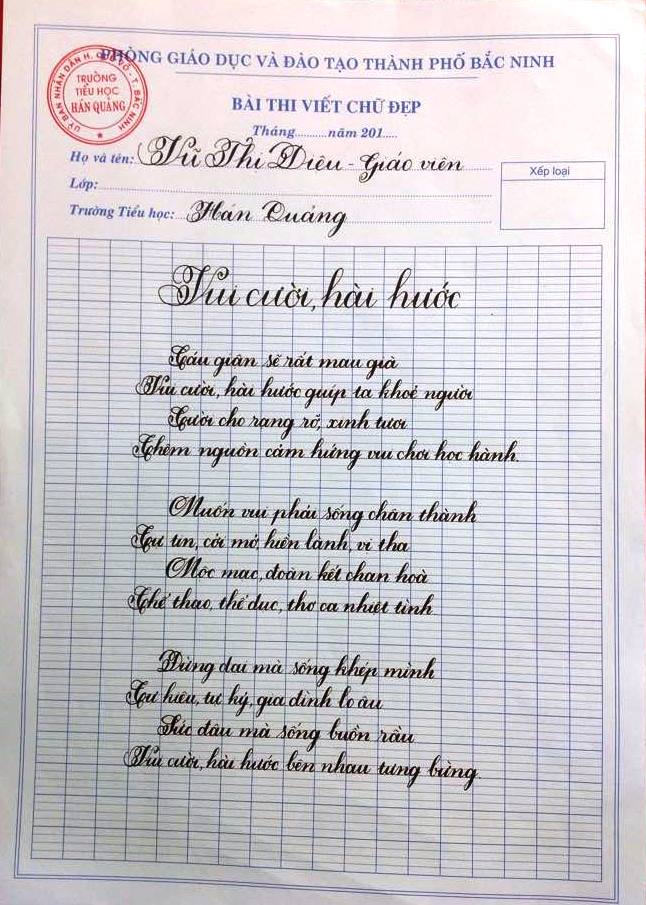 PHÒNG GIÁO DỤC VÀ ĐÀO TẠO THÀNH PHỐ BẮC NINH
TRƯỜNG
TIỂU HỌC
HÁN QUẢNG
BÀI THI VIẾT CHỮ ĐẸP
Tháng..........năm 201.....
Họ và tên: Vũ Thị Diêu - Giáo viên
Xếp loại
Lớp:
Trường Tiểu học: Hán Quảng
Vui cười, hài hước
Cáu giận sẽ rất mau già
Vui cười, hài hước guíp ta khoẻ người
Cười cho rạng rỡ, xinh tươi
Thêm nguồn cảm hứng vui chơi học hành.
Muốn vui phải sống chân thành
Tự tin, cởi mở, hiền lành, vị tha
Mộc mạc, đoàn kết chan hoà
Thể thao, thể dục, thơ ca nhiệt tình
Đừng dại mà sống khép mình
Tự kiêu, tự kỷ, gia đình lo âu
Sức đâu mà sống buồn rầu
Vui cười, hài hước bên nhau tưng bừng.